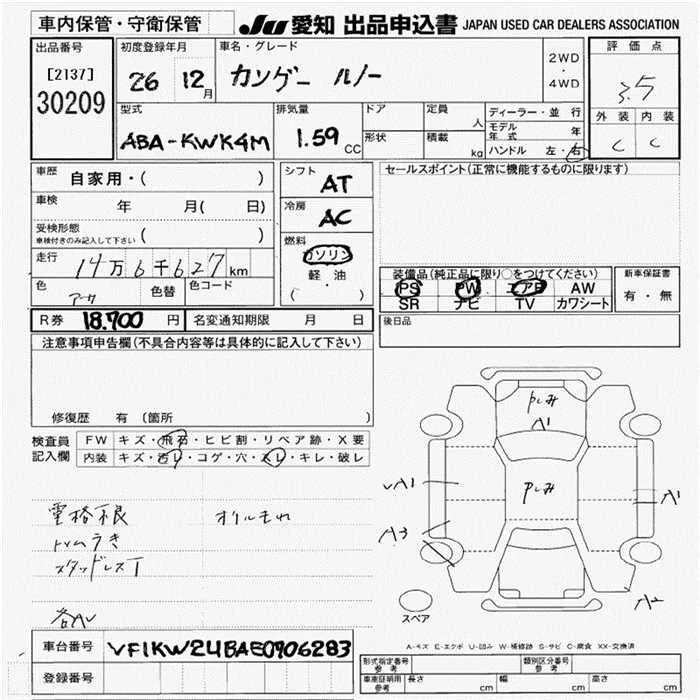 車内保管・守衛保管 JU 愛知 出品申込書 JAPAN USED CAR DEALERS ASSOCIATION
出品番号 初度登録年月 車名・グレード 2WD・4WD 評価点
[2137] 26 12月 カングー ルノー 3.5
30209
型式 排気量 ドア 定員 人 ディーラー・並行 外装 内装
ABA-KWK4M 1.59 CC 形状 積載 kg モデル年式 年 C C
ハンドル 左・右
車歴 自家用・( ) シフト AT セールスポイント(正常に機能するものに限ります)
車検 年 月( 日) 冷房 AC
受検形態 ( )
車検付きのみ記入して下さい
燃料 ガソリン
走行 14万6千627km 軽・油
色 色替 色コード ( )
装備品(純正品に限り○をつけてください) 新車保証書
PS PW エアB AW 有・無
SR ナビ TV カワシート
R券 18.700円 名変通知期限 月 日 後日品
注意事項申告欄(不具合内容等は具体的に記入して下さい)
修復歴 有(箇所 )
検査員記入欄 FW キズ・飛石・ヒビ割・リペア跡・X要
内装 キズ・汚レ・コゲ・穴・スレ・キレ・破レ
A1
A1
A1
A3
A2
オイルもれ
スタッドレスT
スペア
A-キズ E-エクボ U-凹み W-補修跡 S-サビ C-腐食 XX-交換済
車台番号 VF1KW24BAE0906283
登録番号
形式指定番号 参考 類別区分番号 参考
車庫証明用 参考 長さ cm 幅 cm 高さ cm